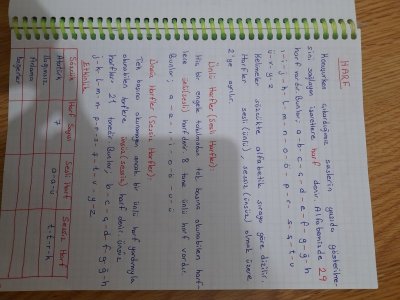 HARF
Konuşurken çıkardığımız seslerin yazıda gösterilme-
sini sağlayan işaretlere harf denir. Alfabemizde 29
harf vardır. Bunlar: a-b-c-ç-d-e-f-g-ğ-h
ı-i-j-k-l-m-n-o-ö-p-r-s-ş-t-u
ü-v-y-z
Kelimeler sözlükte alfabetik sıraya göre dizilir.
Harfler sesli (ünlü), sessiz (ünsüz) olmak üzere
2'ye ayrılır.
Ünlü Harfler (Sesli Harfler):
Hiç bir engele takılmadan tek başına okunabilen harf-
lere ünlü(sesli) harf denir. 8 tane ünlü harf vardır.
Bunlar: a-e-ı-i-o-ö-u-ü
Ünsüz Harfler (Sessiz Harfler):
Tek başına okunamayan ancak bir ünlü harf yardımıyla
okunabilen harflere ünsüz (sessiz) harf denir. Ünsüz
harfler 21 tanedir. Bunlar; b-c-ç-d-f-g-ğ-h
j-k-l-m-n-p-r-s-ş-t-v-y-z
Etkinlik
Sözcük Harf Sayısı Sesli Harf Sessiz Harf
Atatürk 7 a-a-ü t-t-r-k